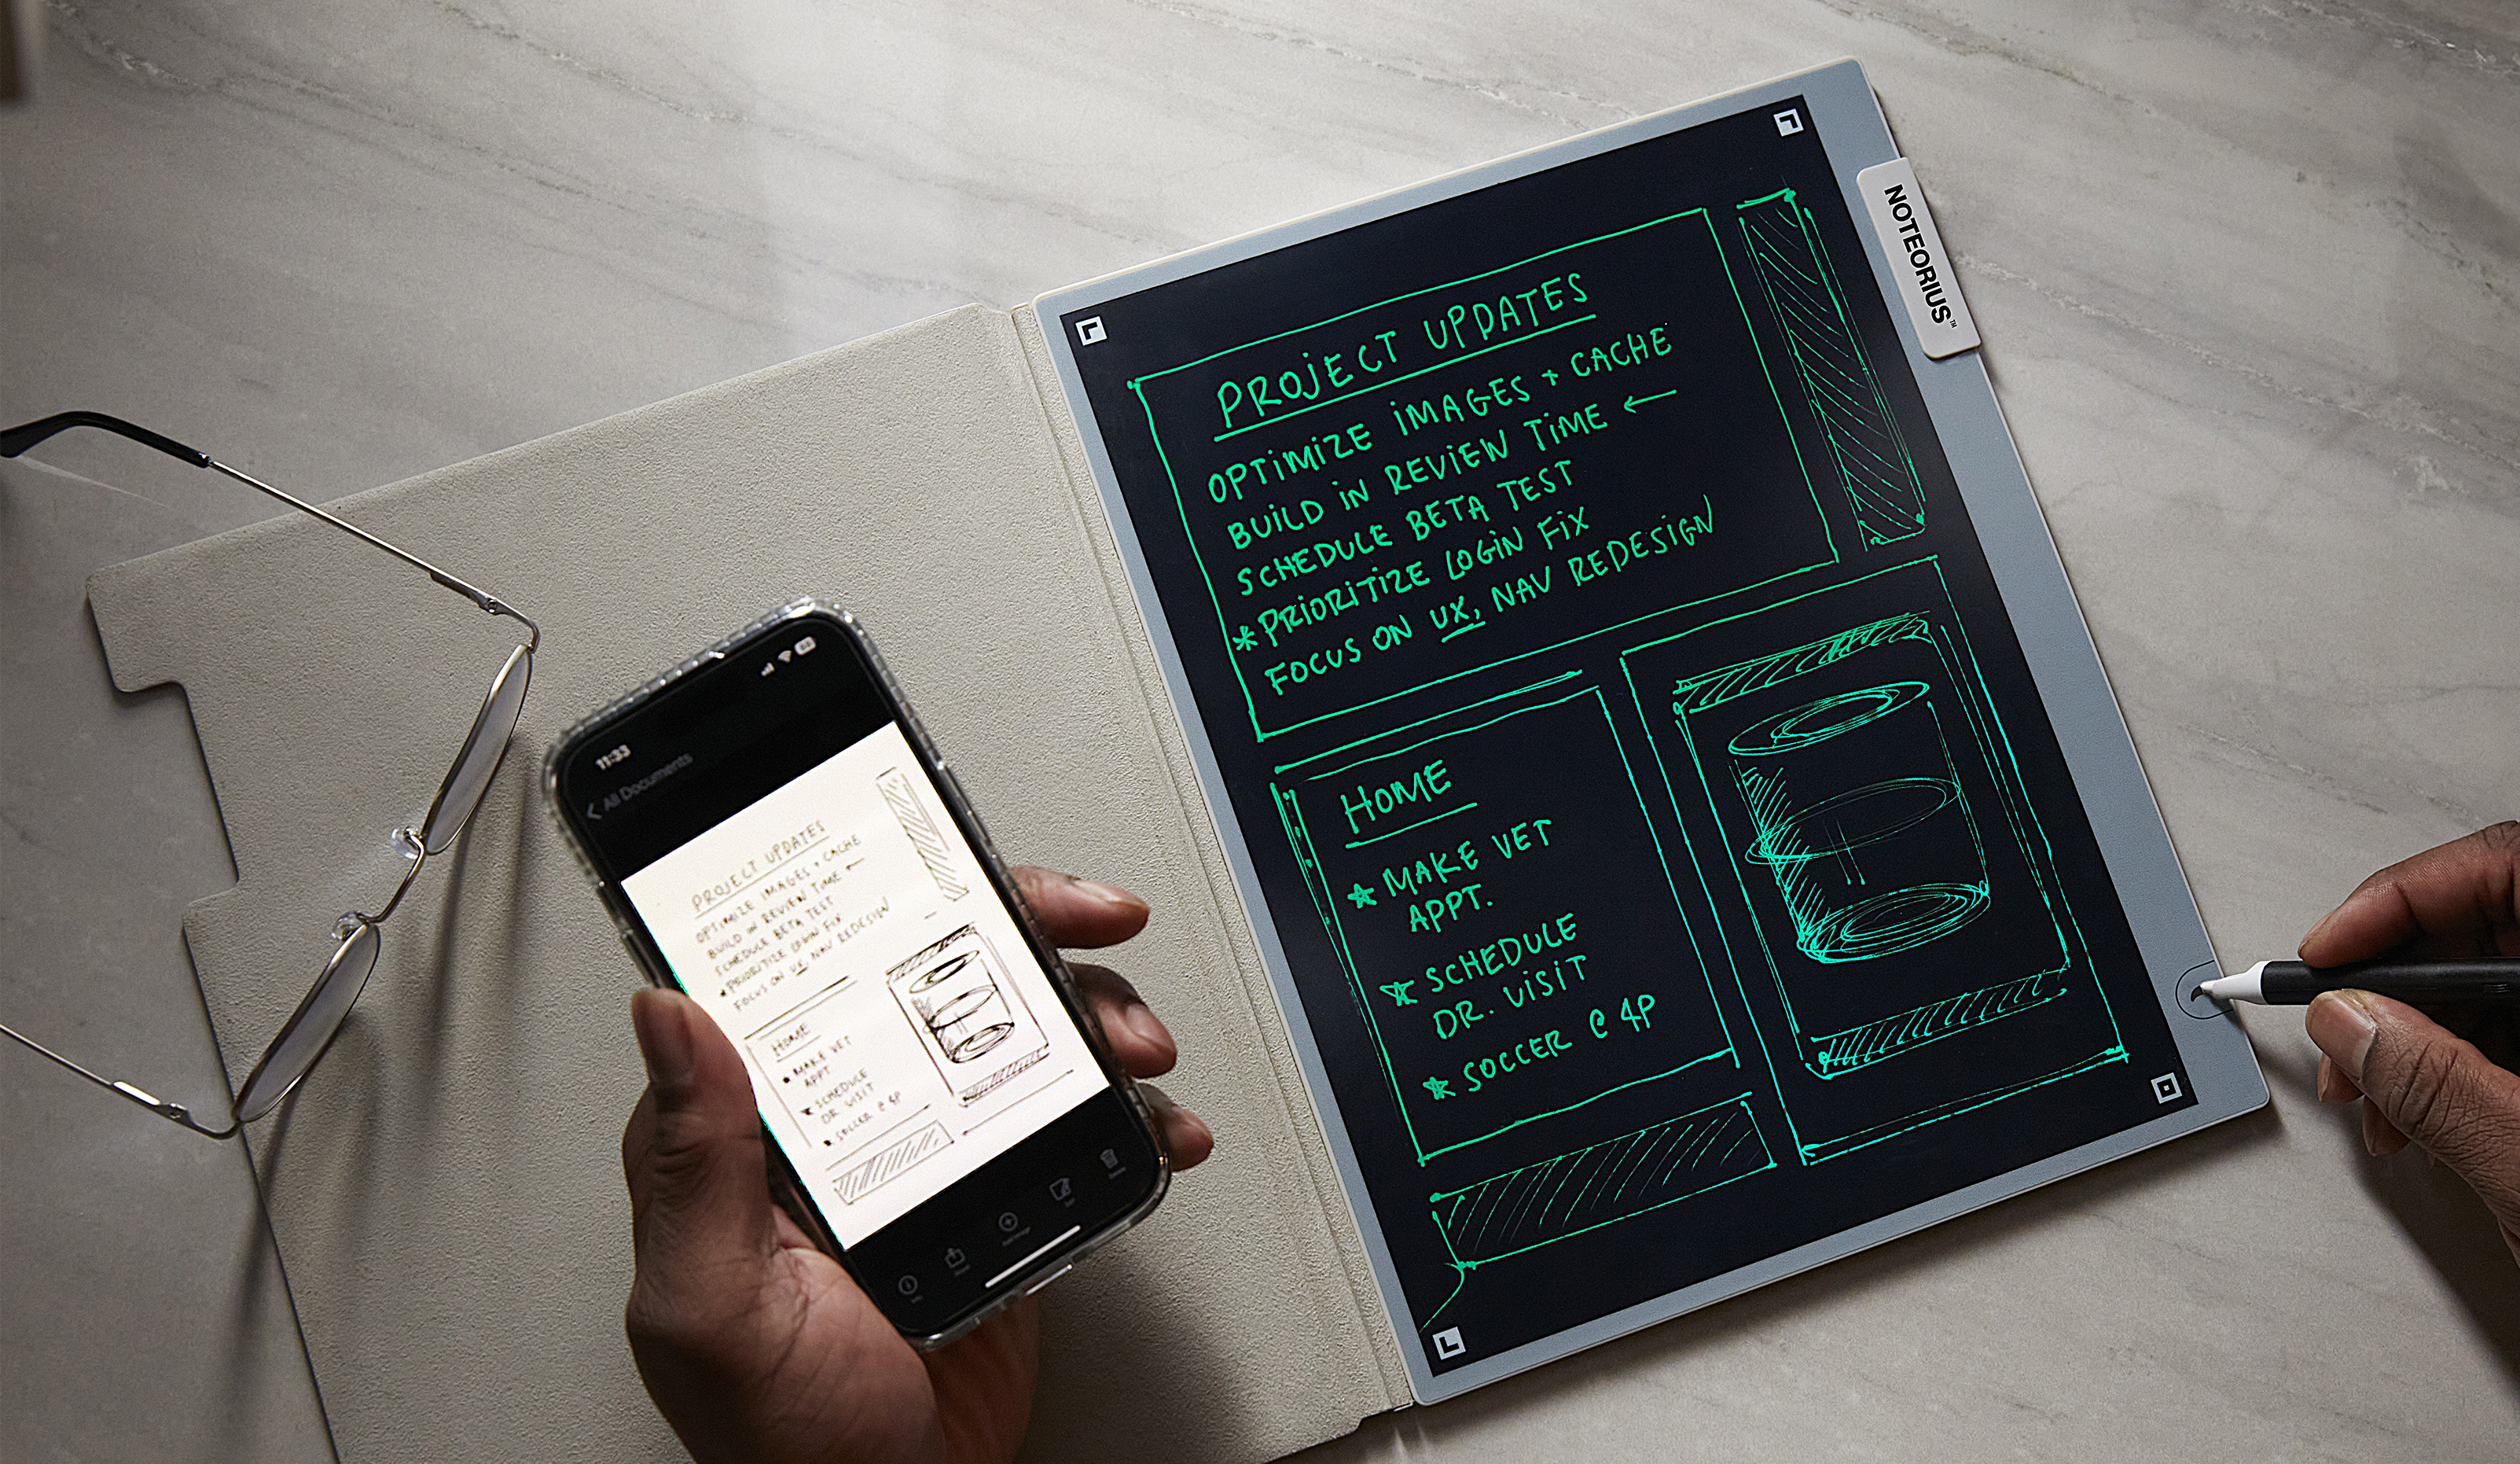 NOTEORIUS™
PROJECT UPDATES
OPTIMIZE IMAGES + CACHE
BUILD IN REVIEW TIME ←
SCHEDULE BETA TEST
* PRIORITIZE LOGIN FIX
FOCUS ON UX, NAV REDESIGN
HOME
★ MAKE VET
APPT.
★ SCHEDULE
DR. VISIT
★ SOCCER @ 4P
11:33
< All Documents
PROJECT UPDATES
OPTIMIZE IMAGES + CACHE
BUILD IN REVIEW TIME ←
SCHEDULE BETA TEST
* PRIORITIZE LOGIN FIX
FOCUS ON UX, NAV REDESIGN
HOME
★ MAKE VET
APPT.
★ SCHEDULE
DR. VISIT
★ SOCCER @ 4P